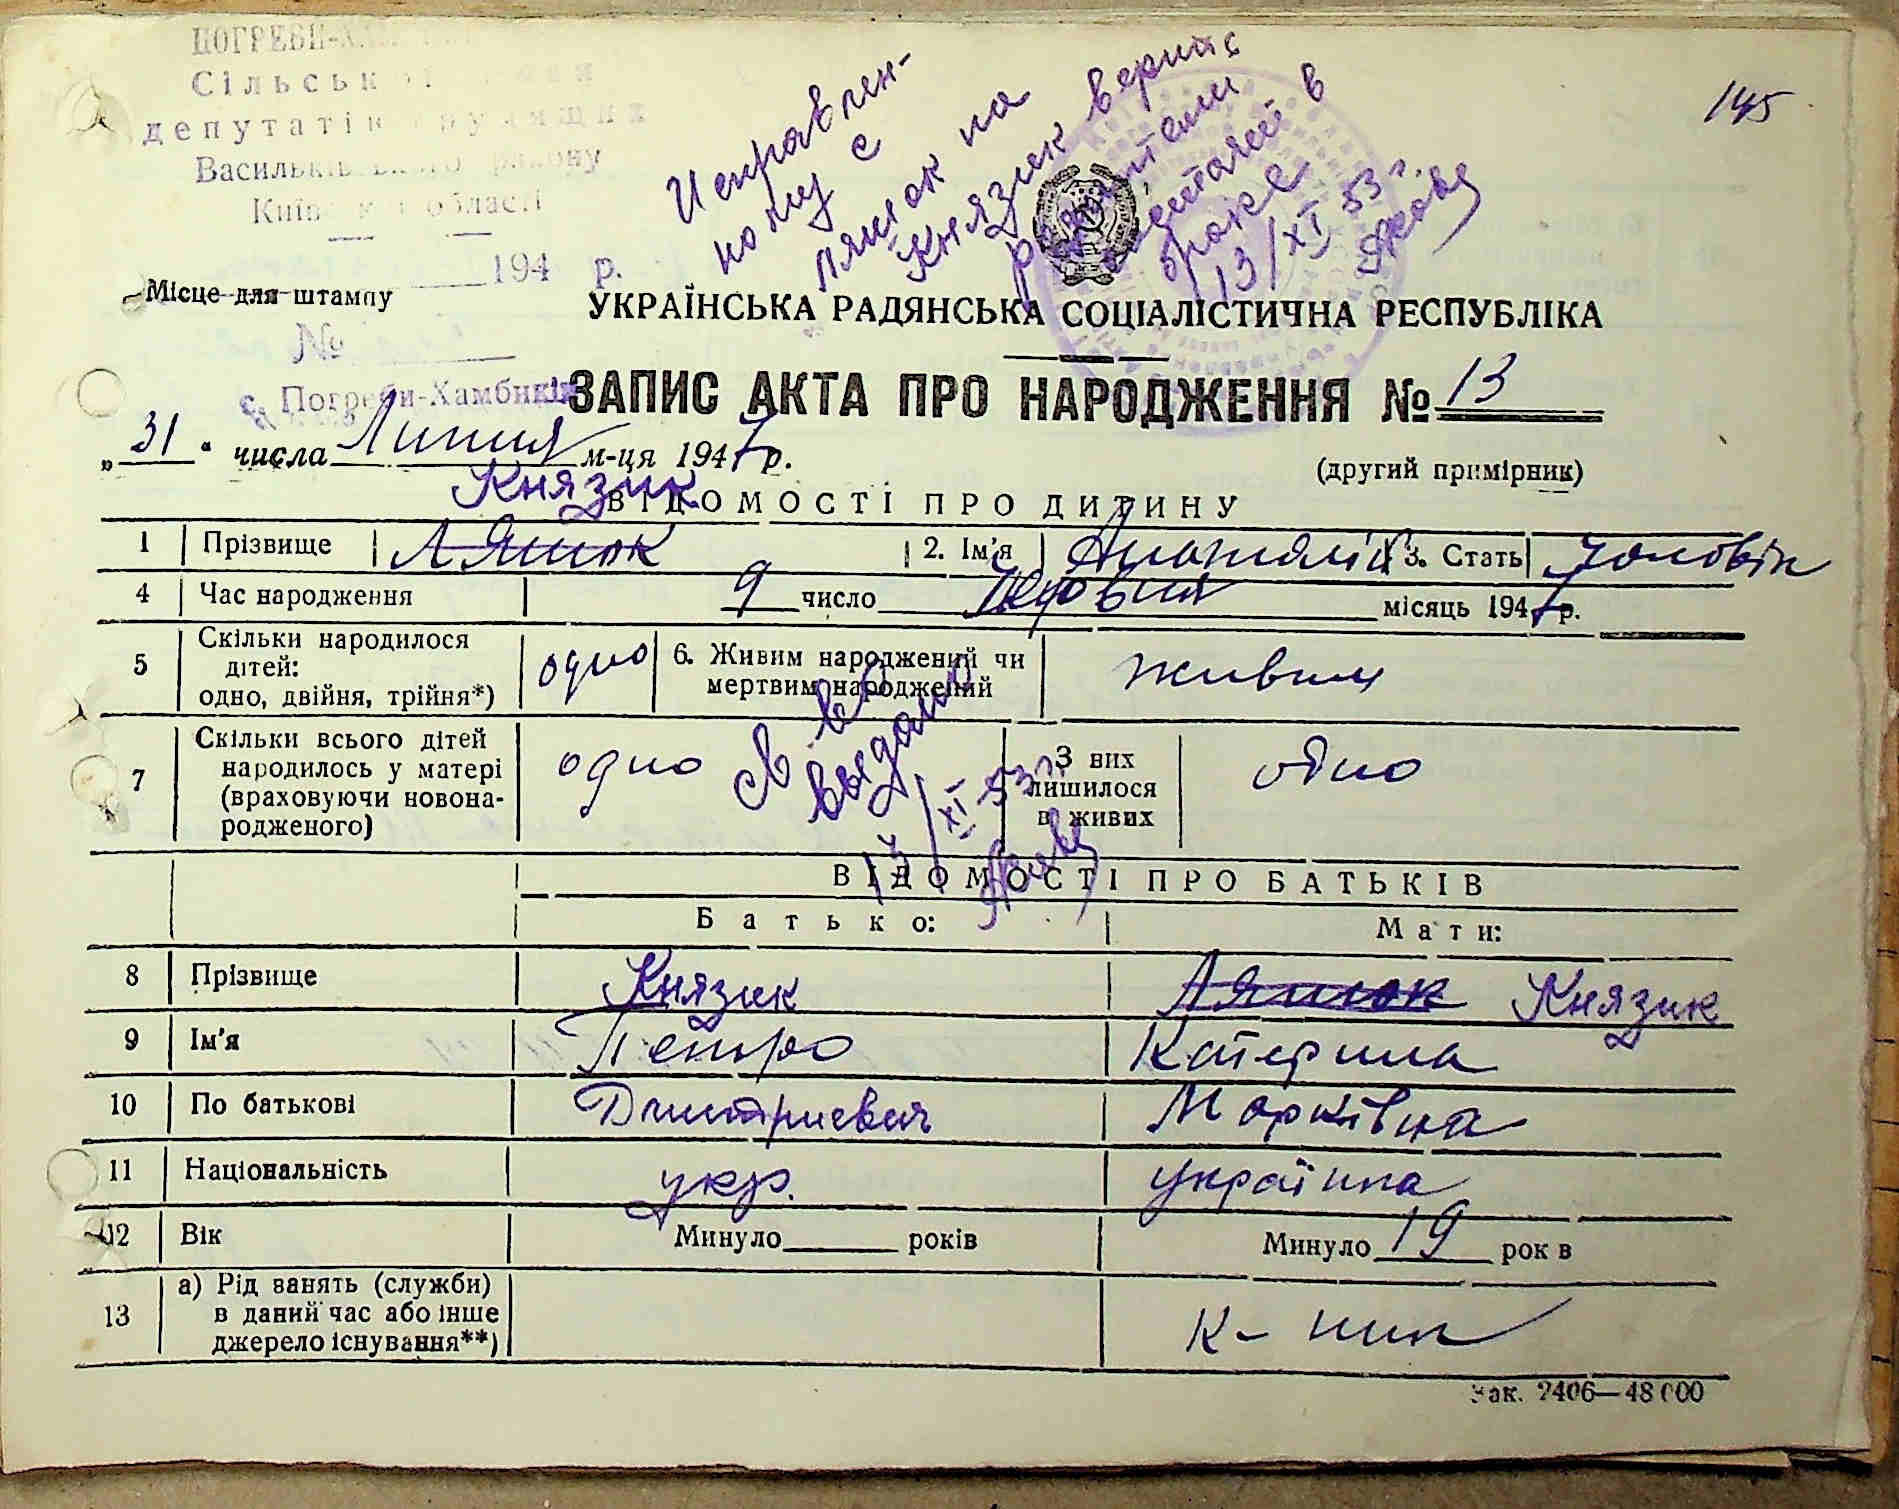 145
Сільськ
депутатів трудящих
Васильківського району
Київської області
194 р.
Місце для штампу
№
с. Погреби-Хамбиків
Исправлен-
ному с
Ляшок на
Князик верить
родители
в
браке
13/XI 53 г.
УКРАЇНСЬКА РАДЯНСЬКА СОЦІАЛІСТИЧНА РЕСПУБЛІКА
ЗАПИС АКТА ПРО НАРОДЖЕННЯ № 13
„31“ числа Липня м-ця 1947 р.
(другий примірник)
Князик
ВІДОМОСТІ ПРО ДИТИНУ
1 Прізвище Ляшок 2. Ім'я Анатолій 3. Стать чоловік
4 Час народження 9 число місяць 1947 р.
5 Скільки народилося дітей: одно, двійня, трійня*) одно 6. Живим народжений чи мертвим народжений живим
7 Скільки всього дітей народилось у матері (враховуючи новонародженого) одно З них лишилося в живих одно
св во
выдано
13/XI 53 г.
ВІДОМОСТІ ПРО БАТЬКІВ
Батько: Мати:
8 Прізвище Князик Ляшок Князик
9 Ім'я Петро Катерина
10 По батькові Дмитриевич Марківна
11 Національність укр. українка
12 Вік Минуло років Минуло 19 рок в
13 а) Рід занять (служби) в даний час або інше джерело існування**) к-ник
Зак. 2406—48000